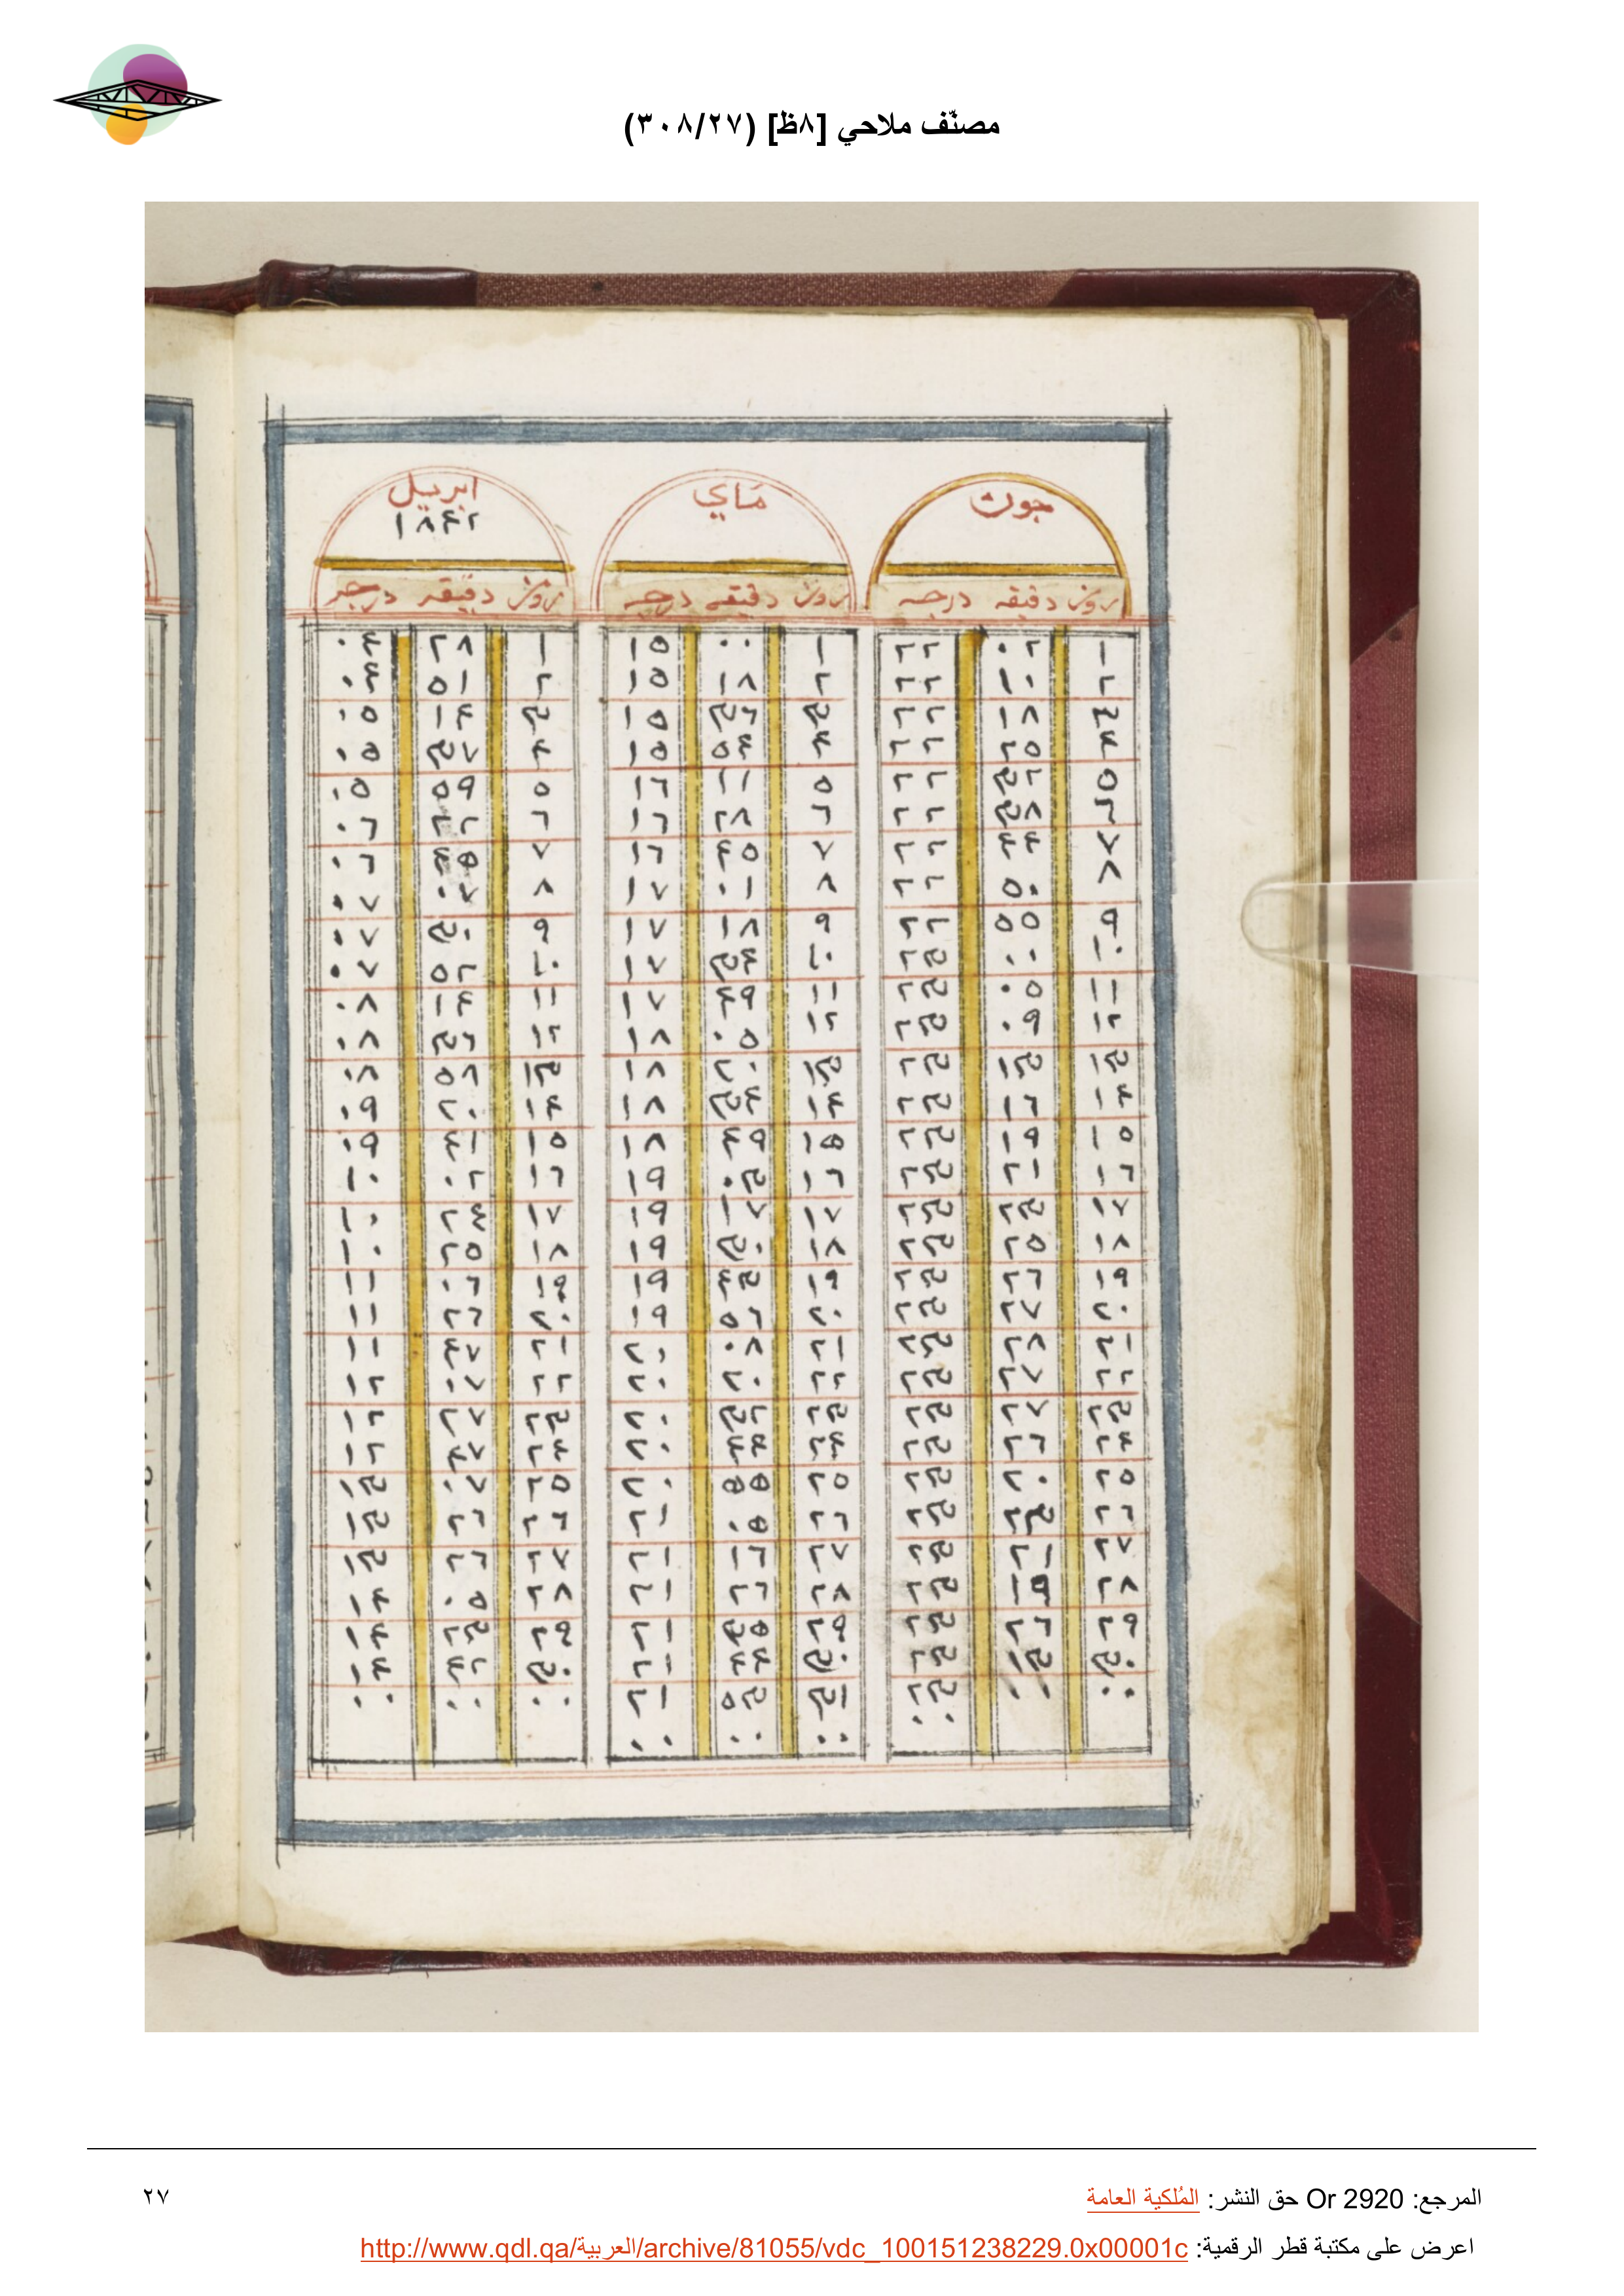 مصنّف ملاحي [٨ظ] (٣٠٨/٢٧)
جون ماي ابريل
١٨٤٢
روز دقيقه درجه روز دقيقه درجه روز دقيقه درجه
١ ٠٢ ٢٢ ١ ٠٠ ١٥ ١ ٢٨ ٠٤
٢ ١٠ ٢٢ ٢ ١٨ ١٥ ٢ ٥١ ٠٤
٣ ١٨ ٢٢ ٣ ٣٦ ١٥ ٣ ١٤ ٠٥
٤ ٢٥ ٢٢ ٤ ٥٤ ١٥ ٤ ٣٧ ٠٥
٥ ٣٢ ٢٢ ٥ ١١ ١٦ ٥ ٥٩ ٠٥
٦ ٣٨ ٢٢ ٦ ٢٨ ١٦ ٦ ٢٢ ٠٦
٧ ٤٤ ٢٢ ٧ ٤٥ ١٦ ٧ ٤٥ ٠٦
٨ ٥٠ ٢٢ ٨ ٠١ ١٧ ٨ ٠٧ ٠٧
٩ ٥٥ ٢٢ ٩ ١٨ ١٧ ٩ ٣٠ ٠٧
١٠ ٠٠ ٢٣ ١٠ ٣٤ ١٧ ١٠ ٥٢ ٠٧
١١ ٠٥ ٢٣ ١١ ٤٩ ١٧ ١١ ١٤ ٠٨
١٢ ٠٩ ٢٣ ١٢ ٠٥ ١٨ ١٢ ٣٦ ٠٨
١٣ ١٣ ٢٣ ١٣ ٢٠ ١٨ ١٣ ٥٨ ٠٨
١٤ ١٦ ٢٣ ١٤ ٣٤ ١٨ ١٤ ٢٠ ٠٩
١٥ ١٩ ٢٣ ١٥ ٤٩ ١٨ ١٥ ٤١ ٠٩
١٦ ٢١ ٢٣ ١٦ ٠٣ ١٩ ١٦ ٠٢ ١٠
١٧ ٢٣ ٢٣ ١٧ ١٧ ١٩ ١٧ ٢٤ ١٠
١٨ ٢٥ ٢٣ ١٨ ٣٠ ١٩ ١٨ ٢٥ ١٠
١٩ ٢٦ ٢٣ ١٩ ٤٣ ١٩ ١٩ ٠٦ ١١
٢٠ ٢٧ ٢٣ ٢٠ ٥٦ ١٩ ٢٠ ٢٦ ١١
٢١ ٢٨ ٢٣ ٢١ ٠٨ ٢٠ ٢١ ٤٧ ١١
٢٢ ٢٧ ٢٣ ٢٢ ٢٠ ٢٠ ٢٢ ٠٧ ١٢
٢٣ ٢٧ ٢٣ ٢٣ ٣٢ ٢٠ ٢٣ ٢٧ ١٢
٢٤ ٢٦ ٢٣ ٢٤ ٤٤ ٢٠ ٢٤ ٤٧ ١٢
٢٥ ٢٠ ٢٣ ٢٥ ٥٥ ٢٠ ٢٥ ٠٧ ١٣
٢٦ ٢٣ ٢٣ ٢٦ ٠٥ ٢١ ٢٦ ٢٦ ١٣
٢٧ ٢١ ٢٣ ٢٧ ١٦ ٢١ ٢٧ ٢٦ ١٣
٢٨ ١٩ ٢٣ ٢٨ ٢٦ ٢١ ٢٨ ٠٥ ١٤
٢٩ ٢٦ ٢٣ ٢٩ ٣٥ ٢١ ٢٩ ٢٣ ١٤
٣٠ ١٣ ٢٣ ٣٠ ٤٤ ٢١ ٣٠ ٤٢ ١٤
٠٠ ٠٠ ٢٣ ٣١ ٥٣ ٢١ ٠٠ ٠٠ ٠٠
٠٠ ٠٠ ٠٠ ٠٠
المرجع: Or 2920 حق النشر: المُلكية العامة ٢٧
اعرض على مكتبة قطر الرقمية: http://www.qdl.qa/العربية/archive/81055/vdc_100151238229.0x00001c